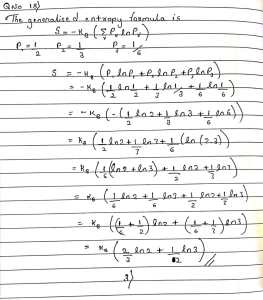 QNo 18)
The generalised entropy formula is
S = -K_B (Σ P_r ln P_r)
P_1 = 1/2 P_2 = 1/3 P_3 = 1/6
S = -K_B (P_1 ln P_1 + P_2 ln P_2 + P_3 ln P_3)
= -K_B (1/2 ln 1/2 + 1/3 ln 1/3 + 1/6 ln 1/6)
= -K_B (-(1/2 ln 2 + 1/3 ln 3 + 1/6 ln 6)
= K_B (1/2 ln 2 + 1/3 ln 3 + 1/6 (ln (2.3)
= K_B (1/6 (ln 2 + ln 3) + 1/2 ln 2 + 1/3 ln 3)
= K_B (1/6 ln 2 + 1/6 ln 3 + 1/2 ln 2 + 1/3 ln 3)
= K_B ((1/6 + 1/2) ln 2 + (1/6 + 1/3) ln 3)
= K_B (2/3 ln 2 + 1/2 ln 3)